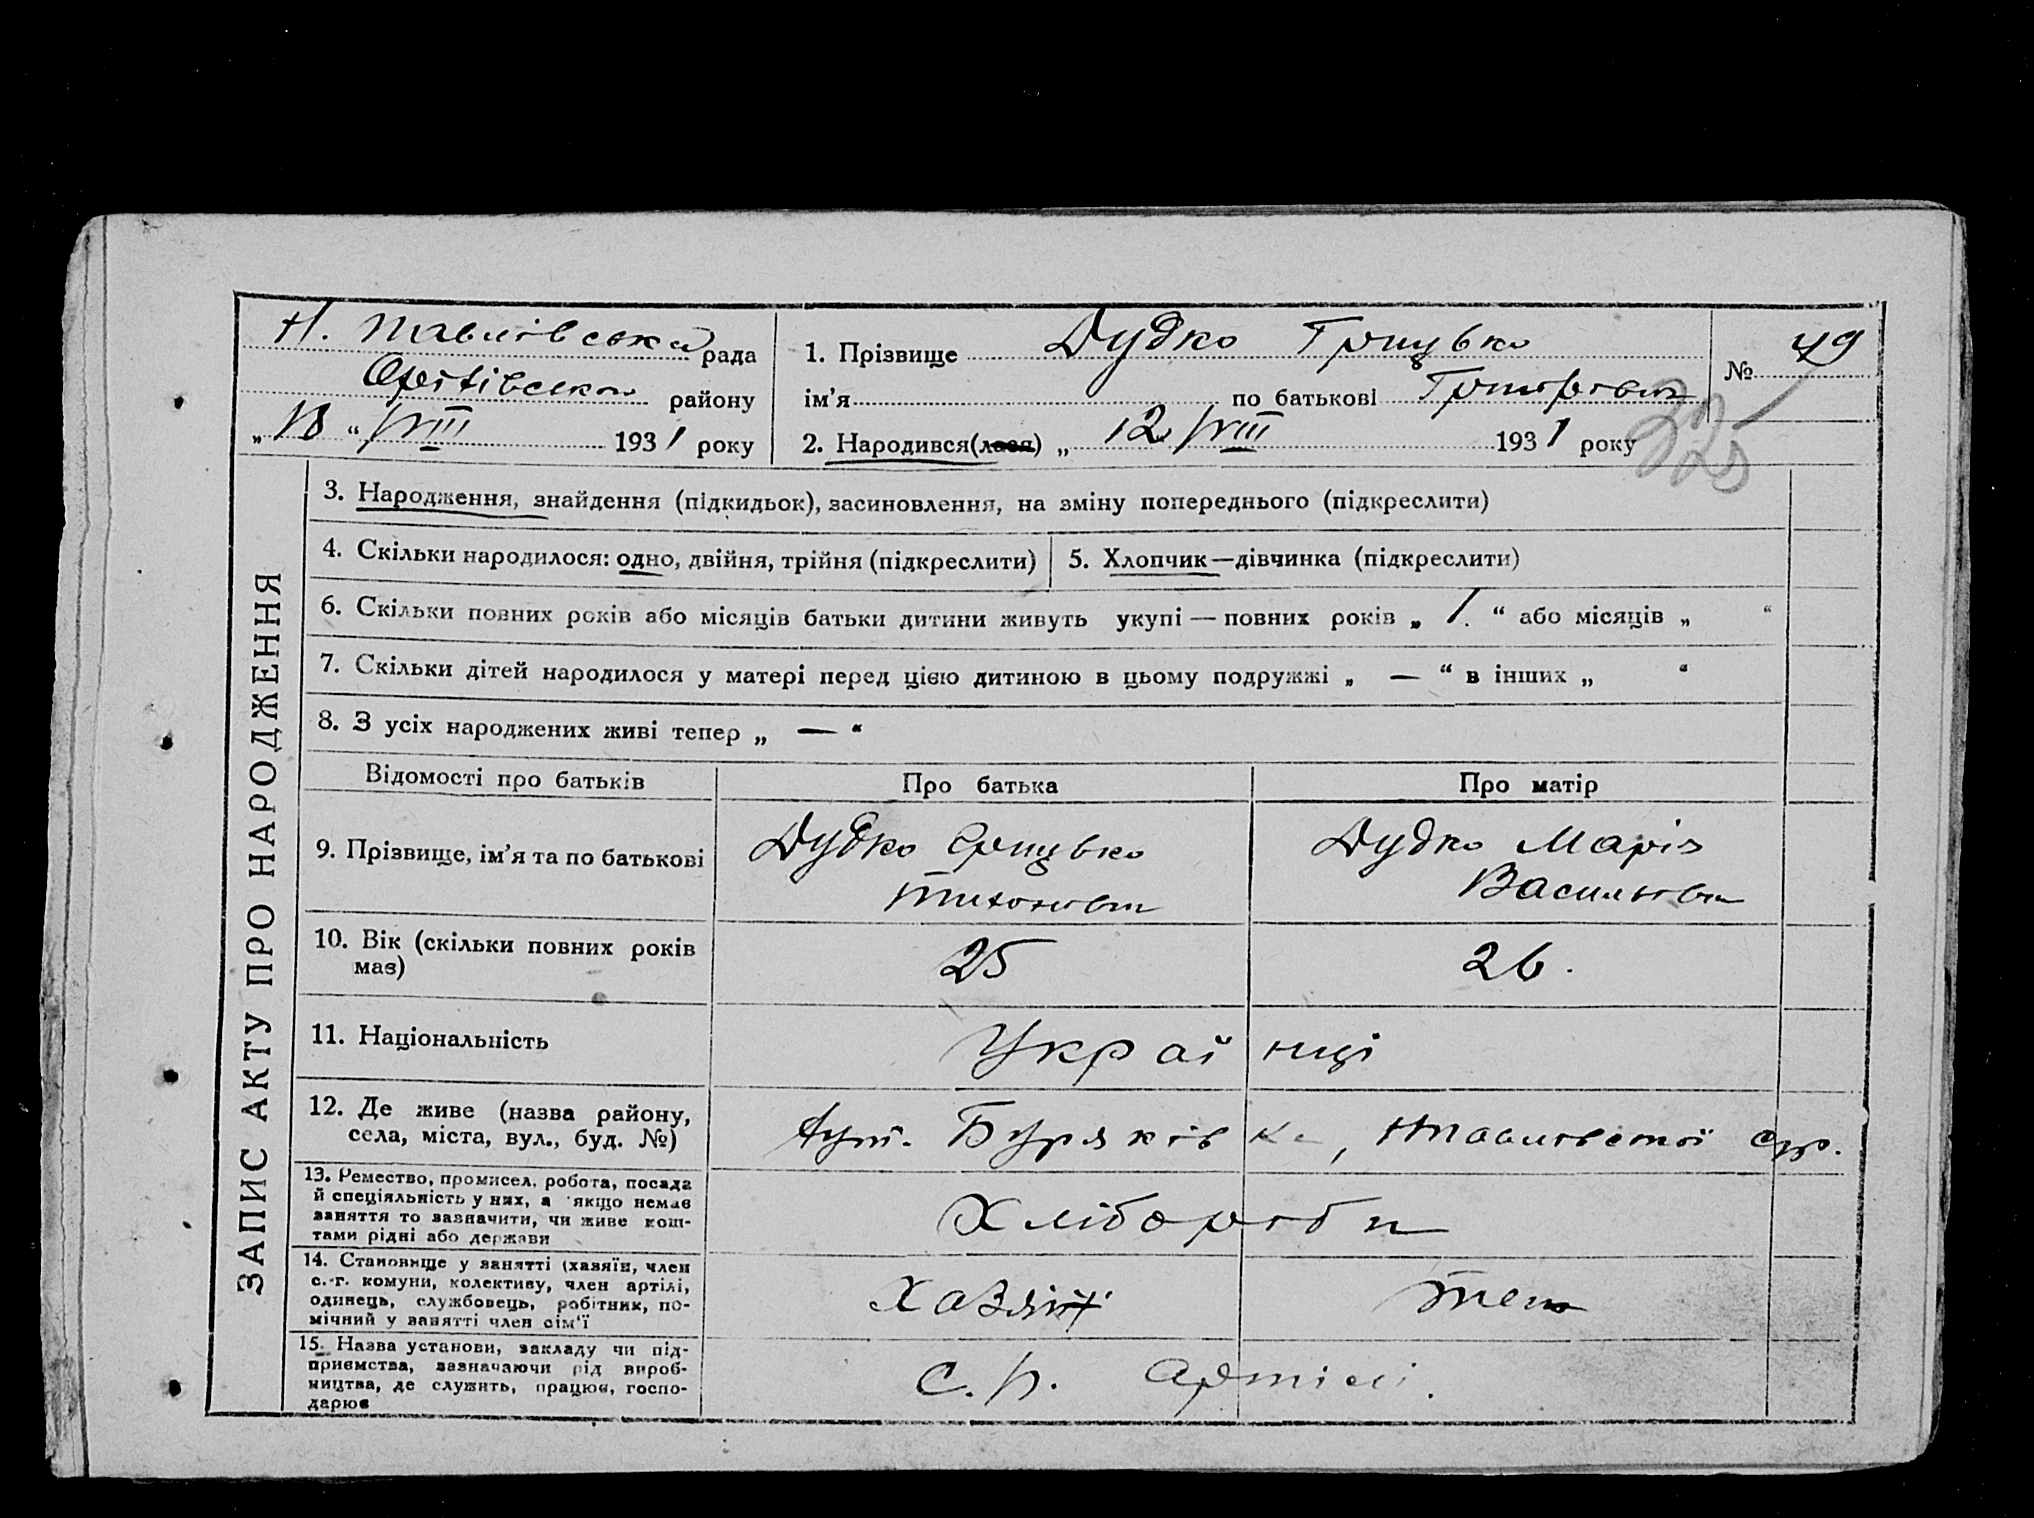 Н. Павлівська рада
району
„18“ VIII 1931 року
1. Прізвище Дудко Грицько
ім’я по батькові Григорович
2. Народився(лася) „12 VIII 1931 року
№ 49
325
ЗАПИС АКТУ ПРО НАРОДЖЕННЯ
3. Народження, знайдення (підкидьок), засиновлення, на зміну попереднього (підкреслити)
4. Скільки народилося: одно, двійня, трійня (підкреслити)
5. Хлопчик—дівчинка (підкреслити)
6. Скільки повних років або місяців батьки дитини живуть укупі — повних років „ 1. “ або місяців „ “
7. Скільки дітей народилося у матері перед цією дитиною в цьому подружжі „ — “ в інших „ “
8. З усіх народжених живі тепер „ — “
Відомості про батьків
Про батька
Про матір
9. Прізвище, ім’я та по батькові
Дудко Грицько
Тихонович
Дудко Марія
Васильовн
10. Вік (скільки повних років
має)
25
26.
11. Національність
Українці
12. Де живе (назва району,
села, міста, вул., буд. №)
хут. Буряківка, Нпавлівської с/р.
13. Ремество, промисел, робота, посада
й спеціяльність у них, а якщо немає
заняття то зазначити, чи живе кош-
тами рідні або держави
Хлібороби
14. Становище у занятті (хазяїн, член
с.-г. комуни, колективу, член артілі,
одинець, службовець, робітник, по-
мічний у занятті член сім’ї
Хазяїн
член
15. Назва установи, закладу чи під-
приємства, зазначаючи рід вироб-
ництва, де служить, працює, госпо-
дарює
С.г. Артілі.